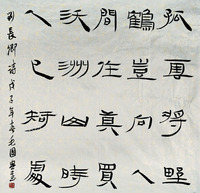 孤雲將野
鶴豈向人
間住莫買
沃洲山時
人已知處
長卿詩戊子年毛國典書